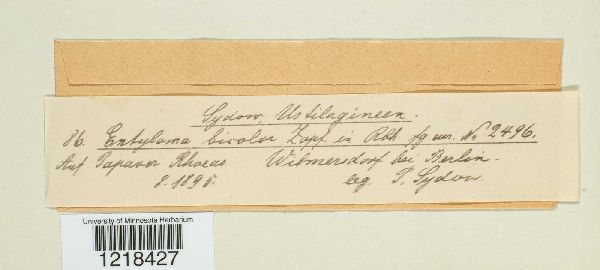 Sydow, Ustilagineen.
86. Entyloma bicolor Zopf in Rbh. fg. eur. No 2496.
Auf Papaver Rhoeas. Wilmersdorf bei Berlin.
8. 1895. leg. P. Sydow.
University of Minnesota Herbarium
1218427